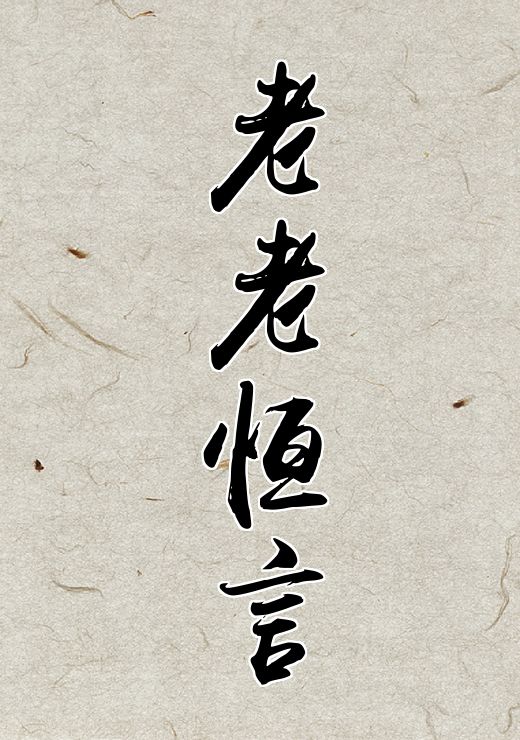 老老恒言